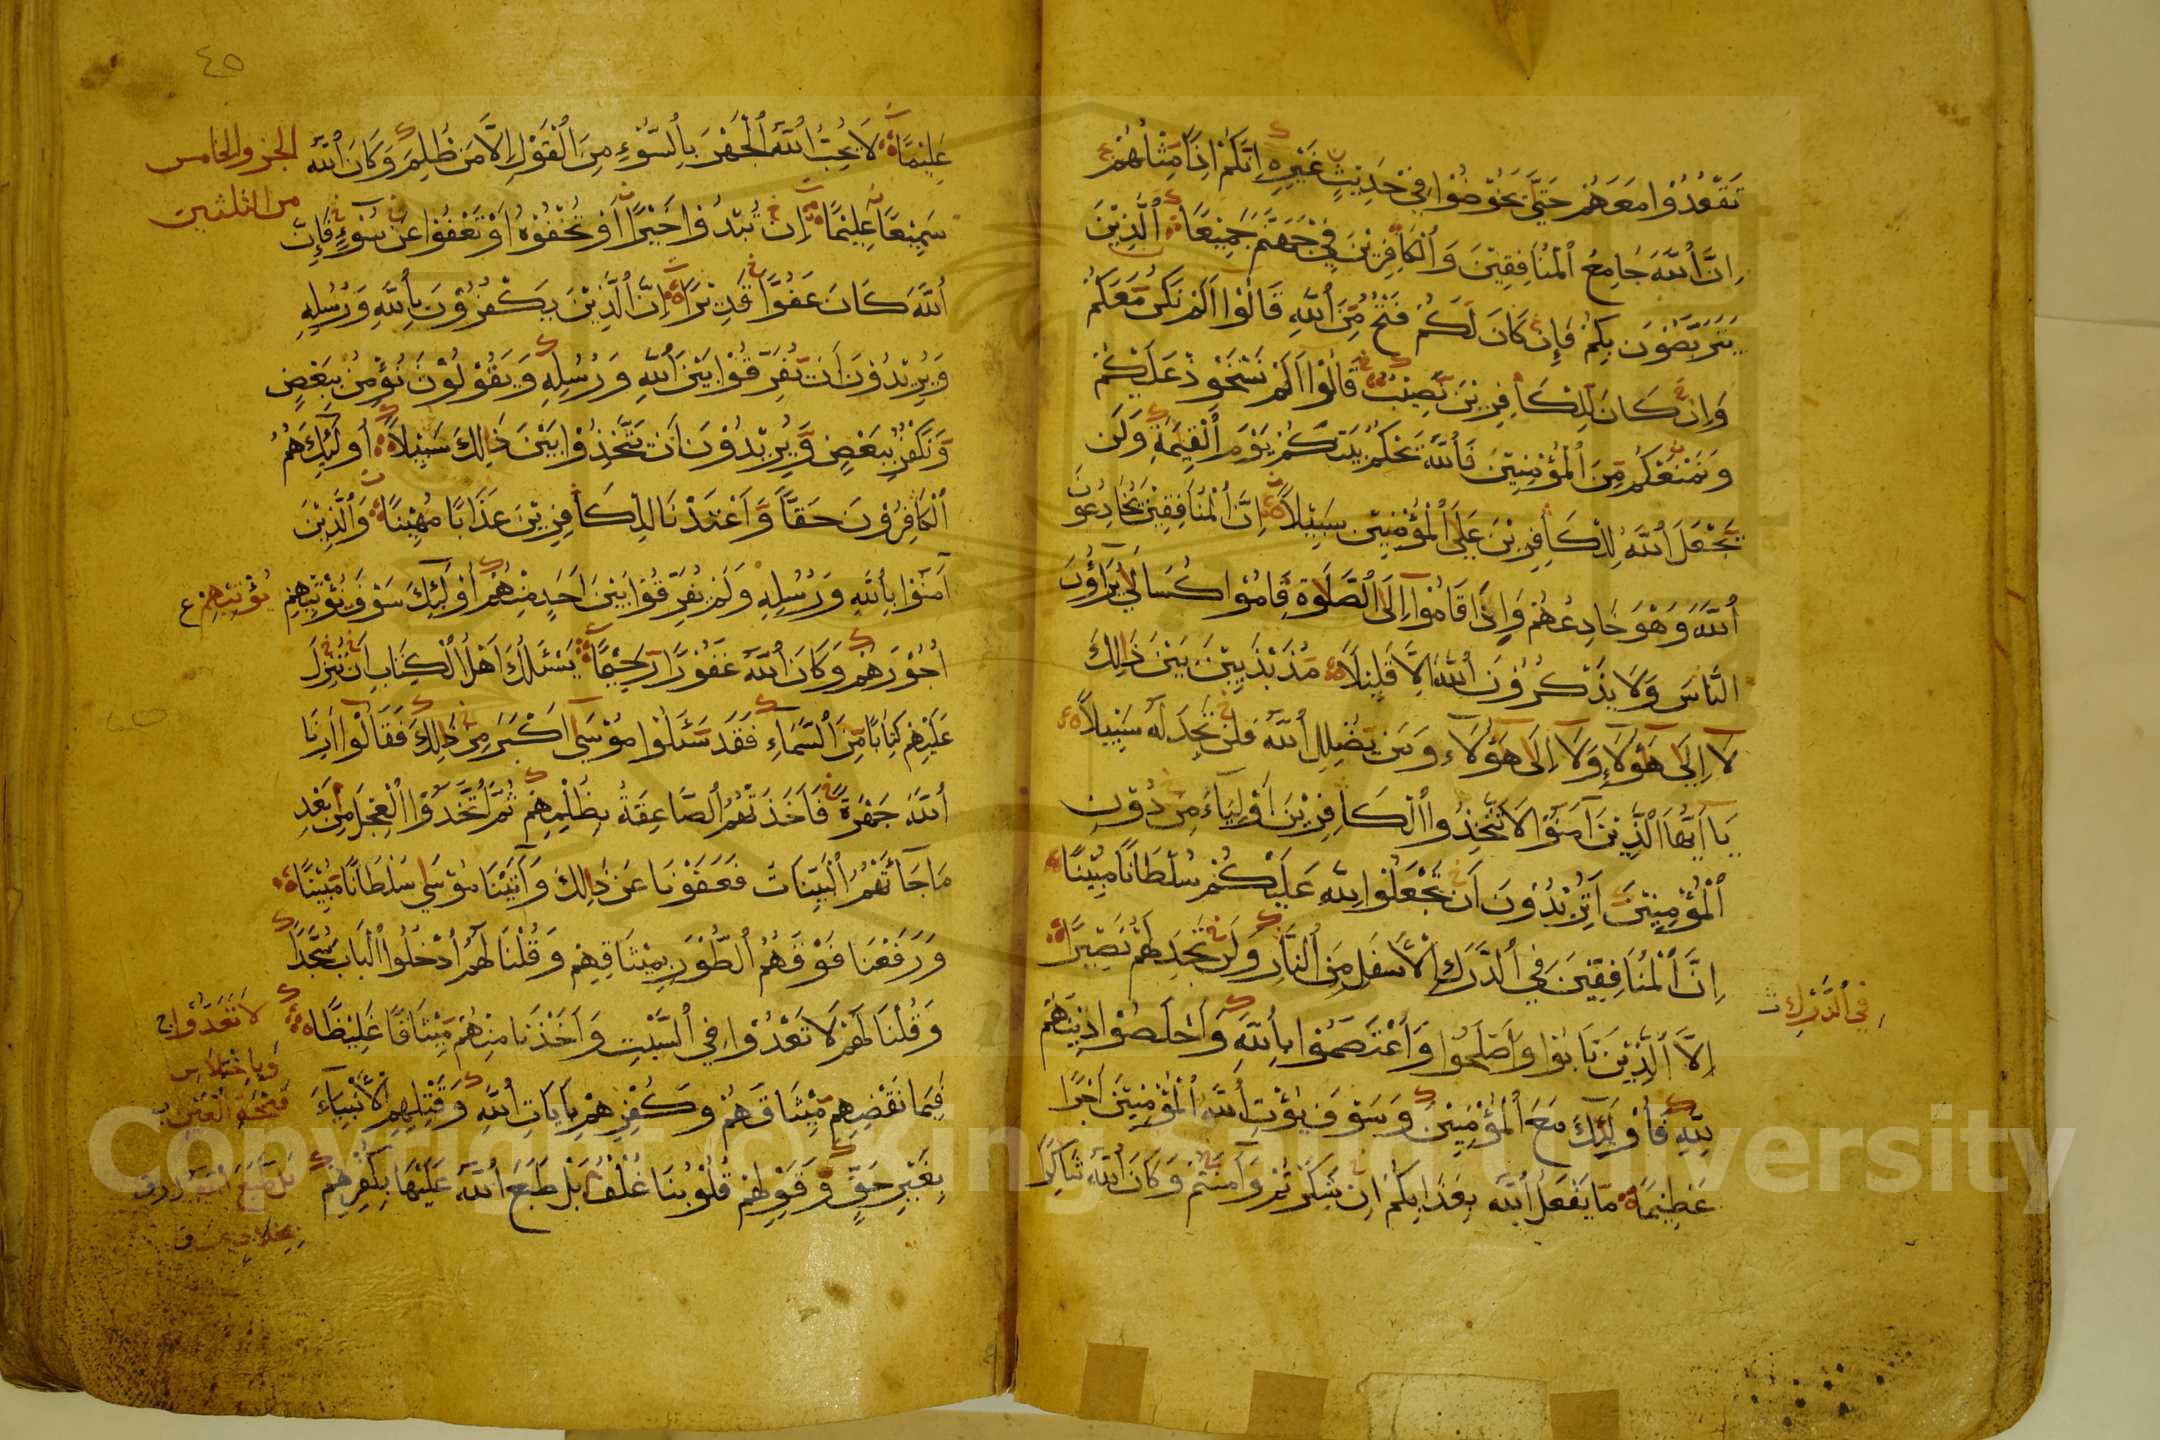 تَقْعُدُوا مَعَهُمْ حَتَّى يَخُوضُوا فِي حَدِيثٍ غَيْرِهِ إِنَّكُمْ إِذًا مِثْلُهُمْ
إِنَّ اللَّهَ جَامِعُ الْمُنَافِقِينَ وَالْكَافِرِينَ فِي جَهَنَّمَ جَمِيعًا الَّذِينَ
يَتَرَبَّصُونَ بِكُمْ فَإِنْ كَانَ لَكُمْ فَتْحٌ مِنَ اللَّهِ قَالُوا أَلَمْ نَكُنْ مَعَكُمْ
وَإِنْ كَانَ لِلْكَافِرِينَ نَصِيبٌ قَالُوا أَلَمْ نَسْتَحْوِذْ عَلَيْكُمْ
وَنَمْنَعْكُمْ مِنَ الْمُؤْمِنِينَ فَاللَّهُ يَحْكُمُ بَيْنَكُمْ يَوْمَ الْقِيمَةِ وَلَنْ
يَجْعَلَ اللَّهُ لِلْكَافِرِينَ عَلَى الْمُؤْمِنِينَ سَبِيلًا إِنَّ الْمُنَافِقِينَ يُخَادِعُونَ
اللَّهَ وَهْوَ خَادِعُهُمْ وَإِذَا قَامُوا إِلَى الصَّلَوةِ قَامُوا كُسَالَى يُرَاؤُنَ
النَّاسَ وَلَا يَذْكُرُونَ اللَّهَ إِلَّا قَلِيلًا مُذَبْذَبِينَ بَيْنَ ذَلِكَ
لَا إِلَى هَؤُلَاءِ وَلَا إِلَى هَؤُلَاءِ وَمَنْ يُضْلِلِ اللَّهُ فَلَنْ تَجِدَ لَهُ سَبِيلًا
يَا أَيُّهَا الَّذِينَ آمَنُوا لَا تَتَّخِذُوا الْكَافِرِينَ أَوْلِيَاءَ مِنْ دُونِ
الْمُؤْمِنِينَ أَتُرِيدُونَ أَنْ تَجْعَلُوا لِلَّهِ عَلَيْكُمْ سُلْطَانًا مُبِينًا
إِنَّ الْمُنَافِقِينَ فِي الدَّرَكِ الْأَسْفَلِ مِنَ النَّارِ وَلَنْ تَجِدَ لَهُمْ نَصِيرًا
فِي الدَّرْكِ
إِلَّا الَّذِينَ تَابُوا وَأَصْلَحُوا وَاعْتَصَمُوا بِاللَّهِ وَأَخْلَصُوا دِينَهُمْ
لِلَّهِ فَأُولَئِكَ مَعَ الْمُؤْمِنِينَ وَسَوْفَ يُؤْتِ اللَّهُ الْمُؤْمِنِينَ أَجْرًا
عَظِيمًا مَا يَفْعَلُ اللَّهُ بِعَذَابِكُمْ إِنْ شَكَرْتُمْ وَآمَنْتُمْ وَكَانَ اللَّهُ شَاكِرًا
٤٥
عَلِيمًا لَا يُحِبُّ اللَّهُ الْجَهْرَ بِالسُّوءِ مِنَ الْقَوْلِ إِلَّا مَنْ ظُلِمَ وَكَانَ اللَّهُ
الجزو الخامس
من الثلثين
سَمِيعًا عَلِيمًا إِنْ تُبْدُوا خَيْرًا أَوْ تُخْفُوهُ أَوْ تَعْفُوا عَنْ سُوءٍ فَإِنَّ
اللَّهَ كَانَ عَفُوًّا قَدِيرًا إِنَّ الَّذِينَ يَكْفُرُونَ بِاللَّهِ وَرُسُلِهِ
وَيُرِيدُونَ أَنْ يُفَرِّقُوا بَيْنَ اللَّهِ وَرُسُلِهِ وَيَقُولُونَ نُؤْمِنُ بِبَعْضٍ
وَنَكْفُرُ بِبَعْضٍ وَيُرِيدُونَ أَنْ يَتَّخِذُوا بَيْنَ ذَلِكَ سَبِيلًا أُولَئِكَ هُمُ
الْكَافِرُونَ حَقًّا وَأَعْتَدْنَا لِلْكَافِرِينَ عَذَابًا مُهِينًا وَالَّذِينَ
آمَنُوا بِاللَّهِ وَرُسُلِهِ وَلَمْ يُفَرِّقُوا بَيْنَ أَحَدٍ مِنْهُمْ أُولَئِكَ سَوْفَ نُؤْتِيهِمْ
يُؤْتِيهِمْ ع
أُجُورَهُمْ وَكَانَ اللَّهُ غَفُورًا رَحِيمًا يَسْئَلُكَ أَهْلُ الْكِتَابِ أَنْ تُنَزِّلَ
عَلَيْهِمْ كِتَابًا مِنَ السَّمَاءِ فَقَدْ سَئَلُوا مُوسَى أَكْبَرَ مِنْ ذَلِكَ فَقَالُوا أَرِنَا
اللَّهَ جَهْرَةً فَأَخَذَتْهُمُ الصَّاعِقَةُ بِظُلْمِهِمْ ثُمَّ اتَّخَذُوا الْعِجْلَ مِنْ بَعْدِ
مَا جَاءَتْهُمُ الْبَيِّنَاتُ فَعَفَوْنَا عَنْ ذَلِكَ وَآتَيْنَا مُوسَى سُلْطَانًا مُبِينًا
وَرَفَعْنَا فَوْقَهُمُ الطُّورَ بِمِيثَاقِهِمْ وَقُلْنَا لَهُمُ ادْخُلُوا الْبَابَ سُجَّدًا
وَقُلْنَا لَهُمْ لَا تَعْدُوا فِي السَّبْتِ وَأَخَذْنَا مِنْهُمْ مِيثَاقًا غَلِيظًا
لَا تَعَدُّوا ج
وَبِاخْتِلَاسِ
فَتْحَةِ الْعَيْنِ ب
فَبِمَا نَقْضِهِمْ مِيثَاقَهُمْ وَكُفْرِهِمْ بِآيَاتِ اللَّهِ وَقَتْلِهِمُ الْأَنْبِيَاءَ
بِغَيْرِ حَقٍّ وَقَوْلِهِمْ قُلُوبُنَا غُلْفٌ بَلْ طَبَعَ اللَّهُ عَلَيْهَا بِكُفْرِهِمْ
بَلْ طَبَعَ
Copyright © King Saud University